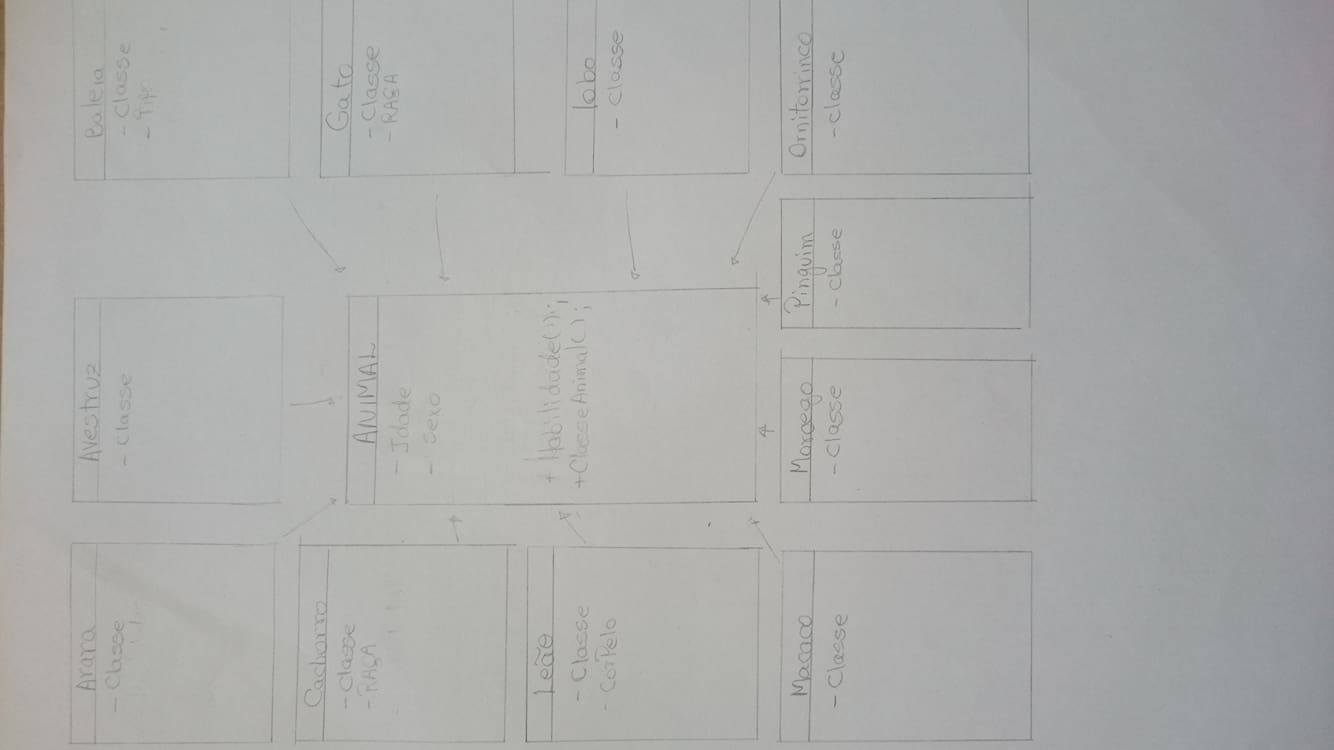 Arara
- Classe
Avestruz
- Classe
Baleia
- Classe
Cachorro
- Classe
- RAÇA
ANIMAL
- Idade
- Sexo
+ Habilidade();
+ ClasseAnimal();
Gato
- Classe
- RAÇA
Leão
- Classe
- CorPelo
lobo
- Classe
Macaco
- Classe
Morcego
- Classe
Pinguim
- Classe
Ornitorrinco
- classe